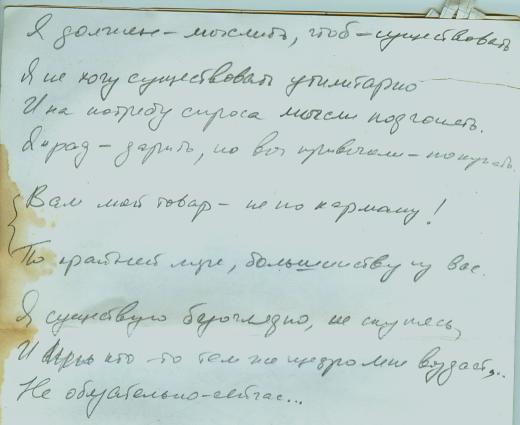 Я должен – мыслить, чтоб – существовать
Я не могу существовать утилитарно
И на потребу спроса мысли подгонять.
Я рад – дарить, но вы привыкли – покупать.
Вам мой товар – не по карману!
По крайней мере, большинству из вас.
Я существую безоглядно, не скупясь,
И кто-то тем же щедро мне воздаст,..
Не обязательно – сейчас...